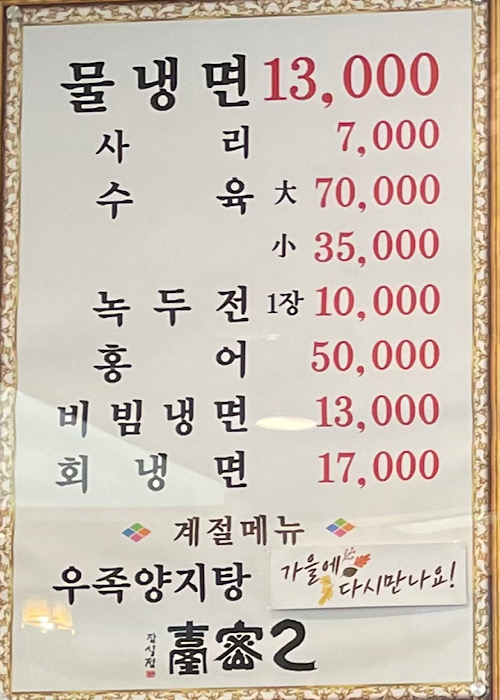 물냉면 13,000
사리 7,000
수육 大 70,000
小 35,000
녹두전 1장 10,000
홍어 50,000
비빔냉면 13,000
회냉면 17,000
계절메뉴
우족양지탕
가을에
다시만나요!
잠실점